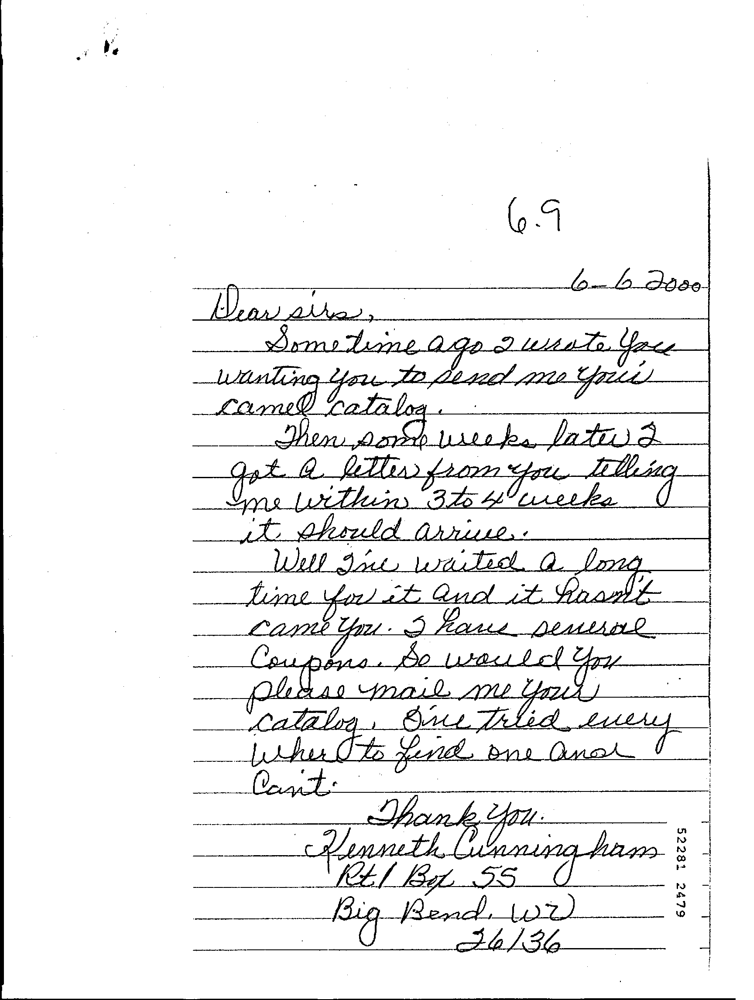 6.9
6-6 2000
Dear sirs,
Sometime ago I wrote you
wanting you to send me your
camel catalog.
Then some weeks later I
got a letter from you telling
me within 3 to 4 weeks
it should arrive.
Well I've waited a long
time for it and it hasn't
came you. I have several
Coupons. So would you
please mail me your
catalog. I've tried every
where to find one and
Can't.
Thank you.
Kenneth Cunningham
Rt. 1 Box 55
Big Bend, WV
26136
52281 2479